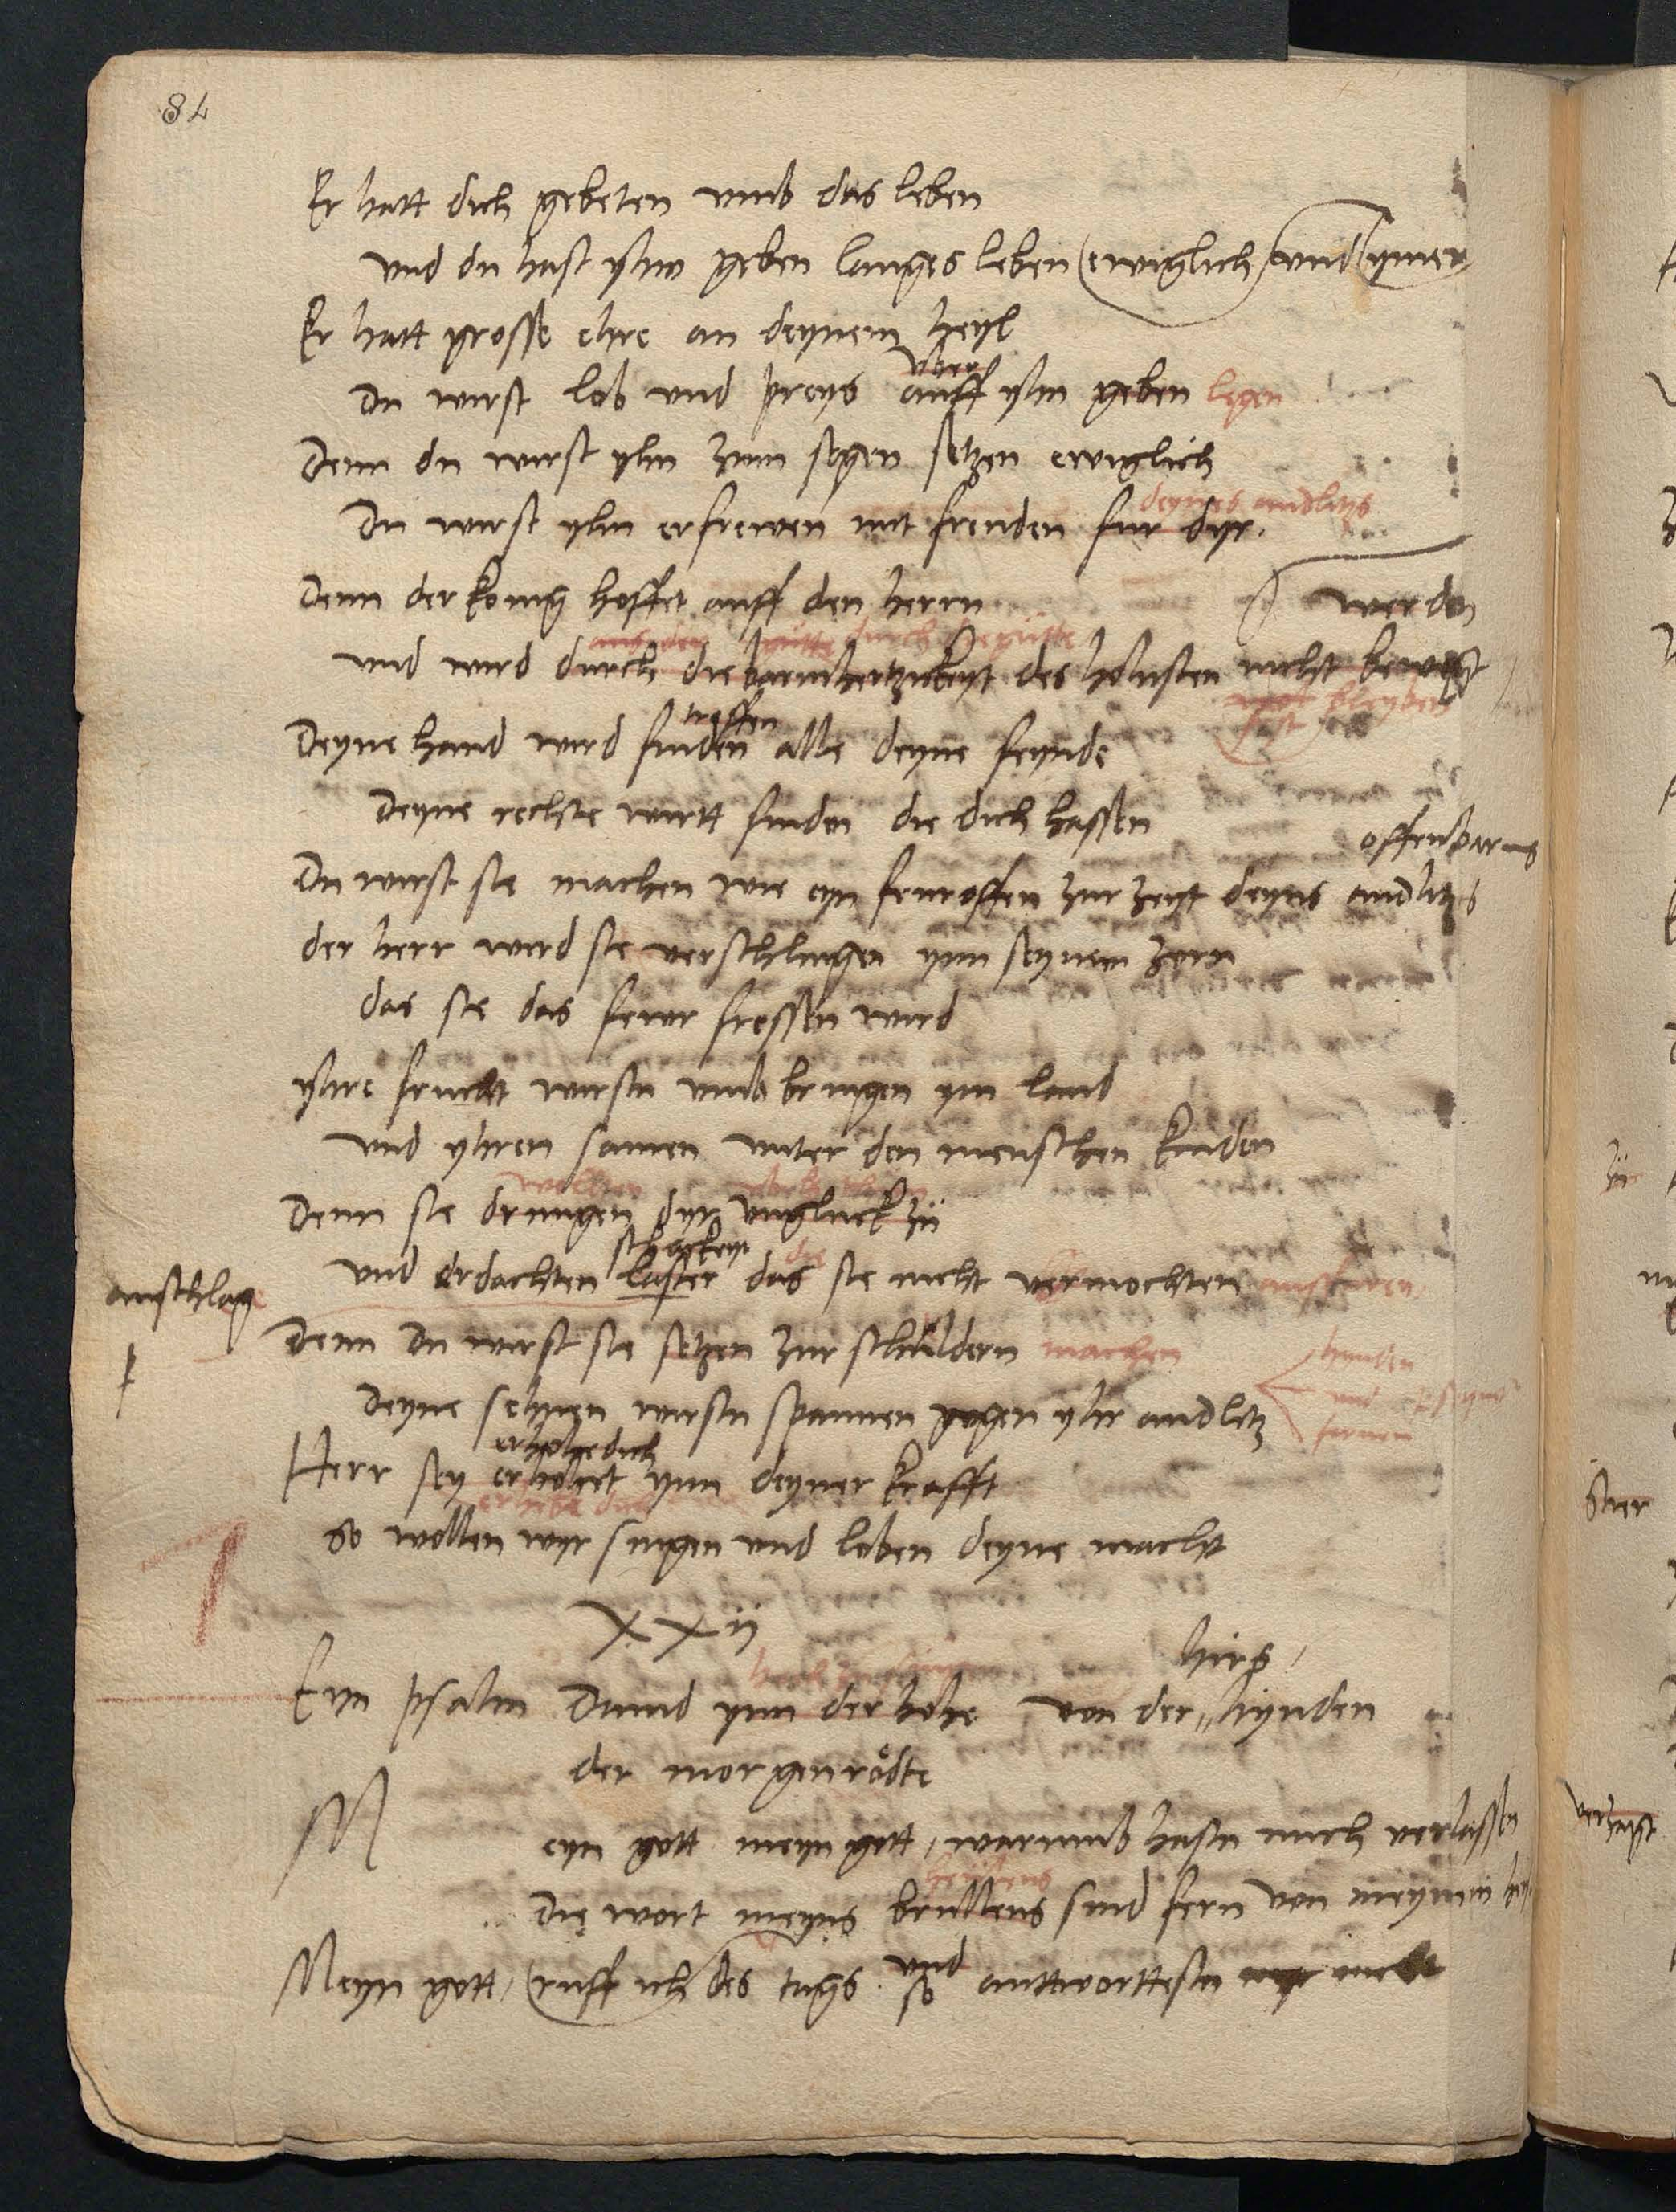 84
Er hatt dich gebeten umb das leben
und du hast yhm geben langes leben ewiglich und ymer
Er hatt grosse ehre an deynem heyl
uber
Du wirst lob und preys auff yhn geben legen
Denn du wirst yhn zum segen setzen ewiglich
deynes andlitzs
Du wirst yhn erfrewen mit freuden fur dyr.
Denn der konig hoffet auff den herrn
werden
durch die gütte
und wird durch die barmhertzickeyt des hohisten nicht bewegt
fest bleyben
treffen
Deyne hand wird finden alle deyne feynde
Deyne rechte wirtt finden die dich hassen
offenbarns
Du wirst sie machen wie eyn feuroffen zur zeyt deyns andlitzs
der herr wird sie verschlingen ynn seynem zorn
das sie das fewr fressen wird
yhre frucht wirstu umb bringen ym land
und yhren samen unter den menschen kinden
wollten
Denn sie drungen dyr ungluck zu
die
und erdachten laster das sie nicht vermochten
anschlage
Denn Du wirst sie setzen zur schuldern machen
Deyne sehnen wirstu spannen gegen yhr andlitz
erhohe dich
Herr sey erhohet ynn deyner krafft
erhebe dich
so wollen wyr singen und loben deyne macht
XXii
hirs
Eyn psalm Dauid ynn der hohe von der hynden
der morgenrödte
M eyn gott meyn gott, warumb hastu mich verlassen
Die wort meyns brullens sind fern von meynem
und
Meyn gott, ruff ich des tags so anttworttestu